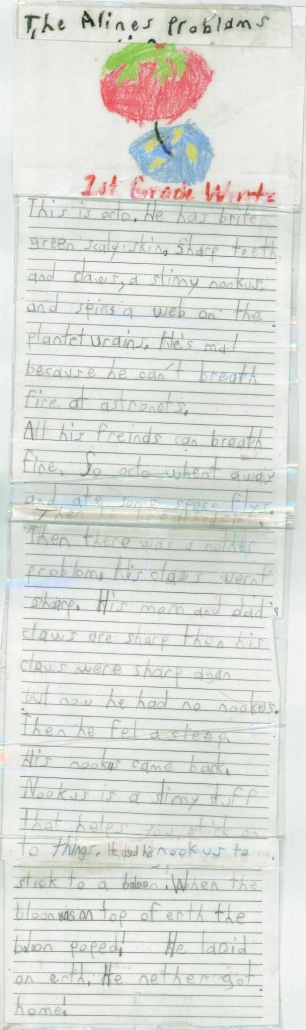 The Alines Problams
1st Grade Write
This is octo. He has brite
green scaly skin, sharp teeth,
and claws, a slimy nookus
and spins a web on the
plantet urains. He's mad
because he can't breath
fire at astronots.
All his freinds can breath
fire. So octo whent away
and ate some space flys.
Then there was a nother
problem, his claws wernt
sharp. His mom and dad's
claws are sharp then his
claws were sharp agan
but now he had no nookus.
Then he fel a sleep
His nookus came back.
Nookus is a slimy stuff
that helps you stick on
to things. He used his nookus to
stick to a baloon. When the
bloon was on top of erth the
baloon poped. He landid
on erth. He nether got
home!